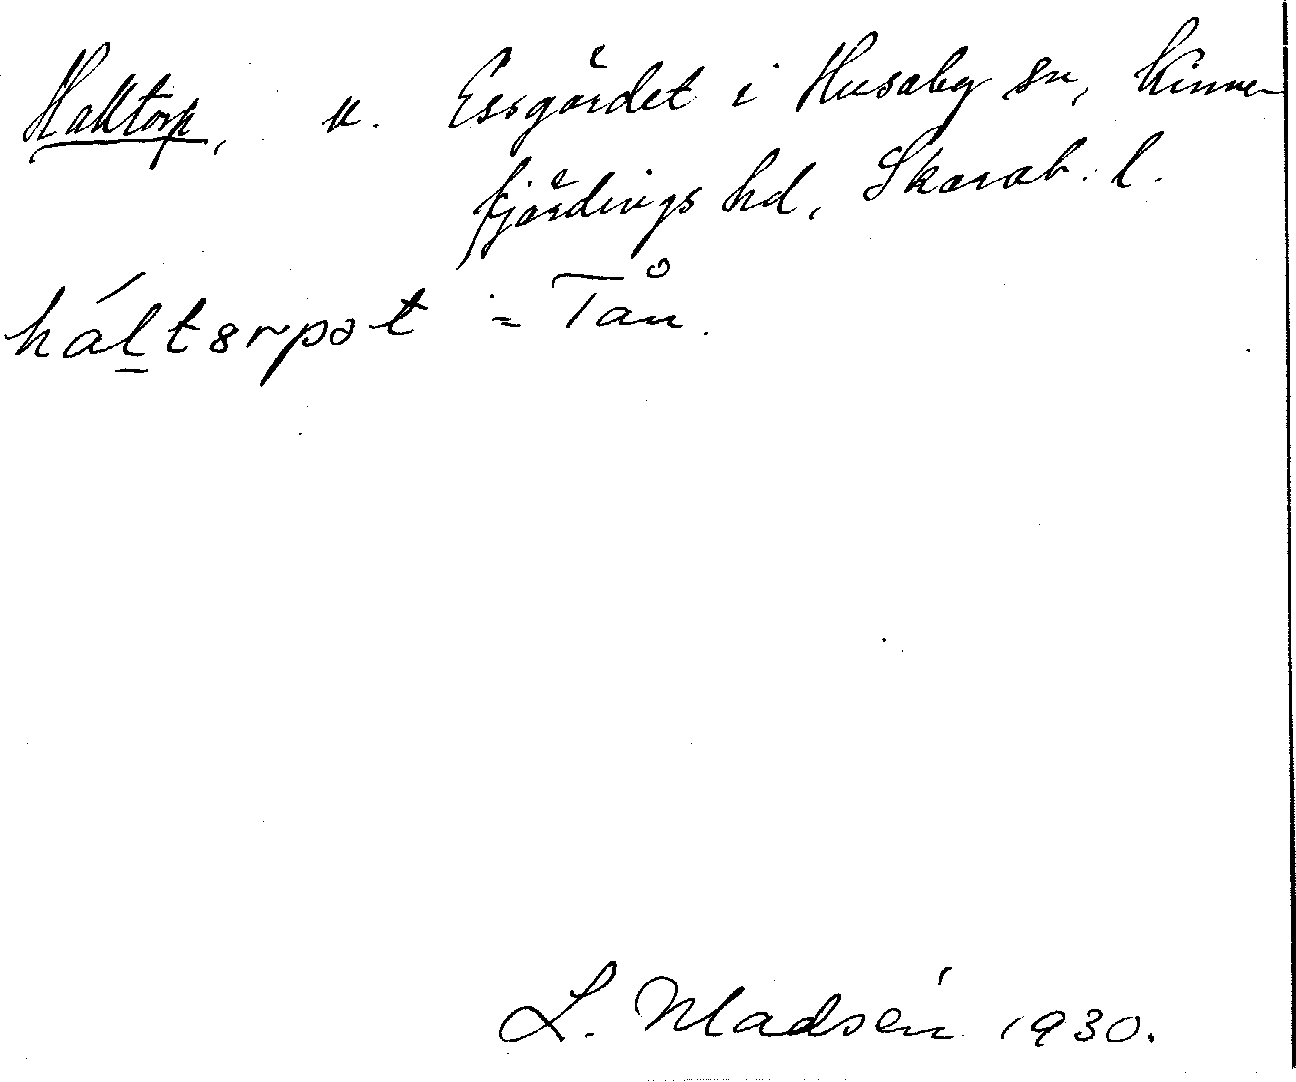 Halltorp, u. Essgärdet i Husaby sn, Kinne-
fjärdings hd, Skarab. l.
háḻtorpət = Tån.
L. Madsén 1930.